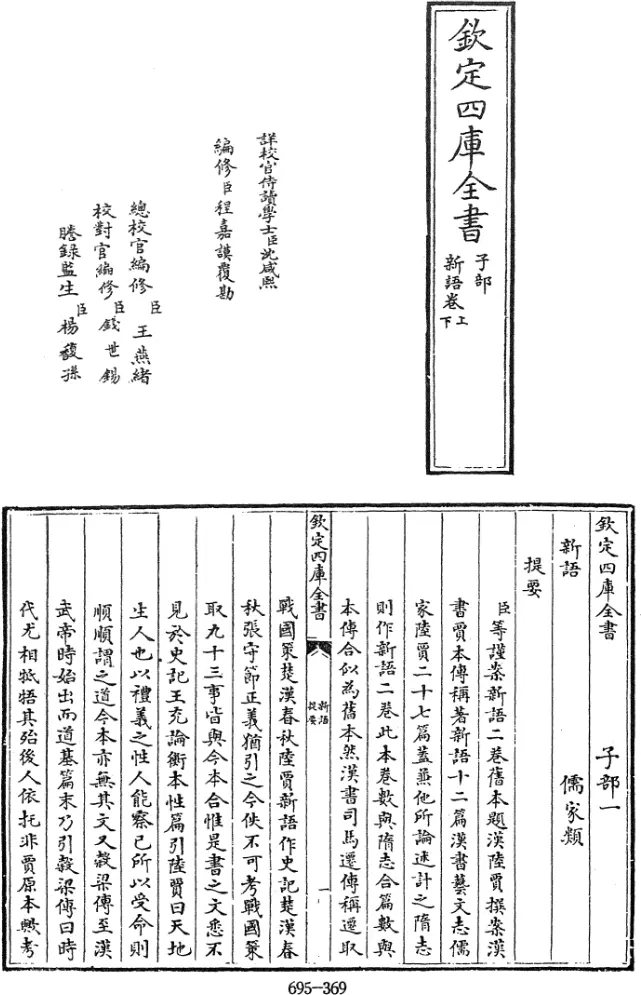 欽定四庫全書
子部
新語卷上下
詳校官侍讀學士臣沈咸熙
編修臣程嘉謨覆勘
總校官編修臣王燕緒
校對官編修臣錢世錫
謄錄監生臣楊馥孫
欽定四庫全書 子部一
新語 儒家類
提要
臣等謹案新語二卷舊本題漢陸賈撰案漢
書賈本傳稱著新語十二篇漢書藝文志儒
家陸賈二十七篇蓋兼他所論述計之隋志
則作新語二卷此本卷數與隋志合篇數與
本傳合似為舊本然漢書司馬遷傳稱遷取
欽定四庫全書 新語提要 一
戰國策楚漢春秋陸賈新語作史記楚漢春
秋張守節正義猶引之今佚不可考戰國策
取九十三事皆與今本合惟是書之文悉不
見於史記王充論衡本性篇引陸賈曰天地
生人也以禮義之性人能察己所以受命則
順順謂之道今本亦無其文又穀梁傳至漢
武帝時始出而道基篇末乃引穀梁傳曰時
代尤相牴牾其殆後人依托非賈原本歟考
695-369